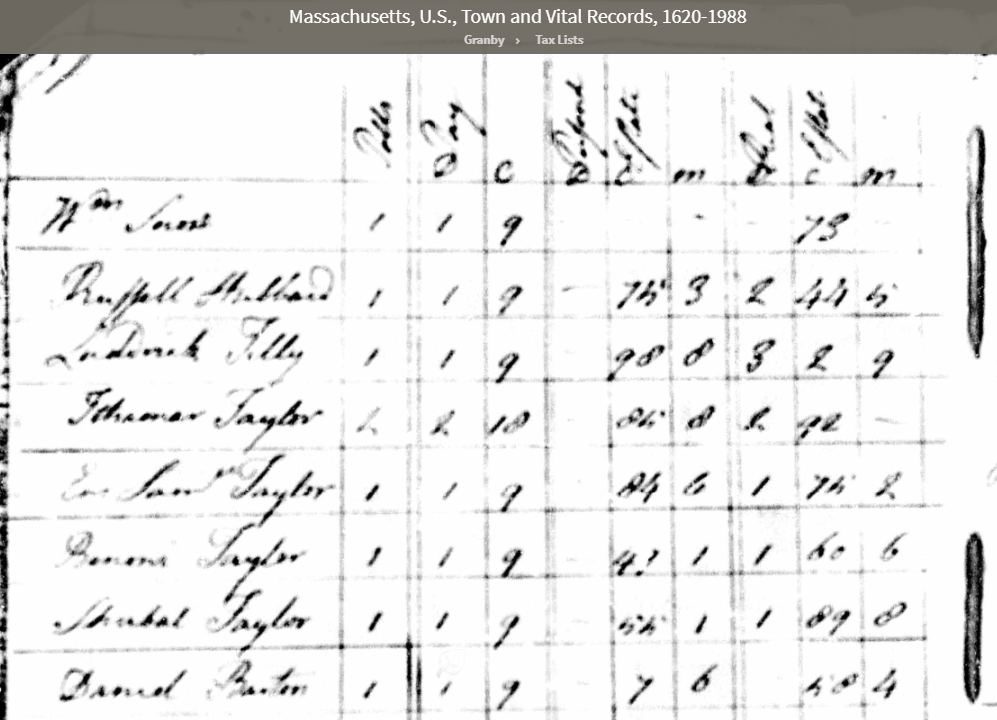 Massachusetts, U.S., Town and Vital Records, 1620-1988
Granby › Tax Lists
Polls Pay Estate Real Estate
D C D C m D C m
Wm 1 1 9 - 73 -
Russell Hubbard 1 1 9 - 75 3 2 44 5
Luderick Filly 1 1 9 98 8 3 2 9
Ithamar Taylor 2 2 18 85 8 2 92 -
Saml Taylor 1 1 9 84 6 1 75 2
Benoni Taylor 1 1 9 - 1 1 60 6
Shubal Taylor 1 1 9 55 1 1 89 8
Daniel Barton 1 1 9 7 6 58 4